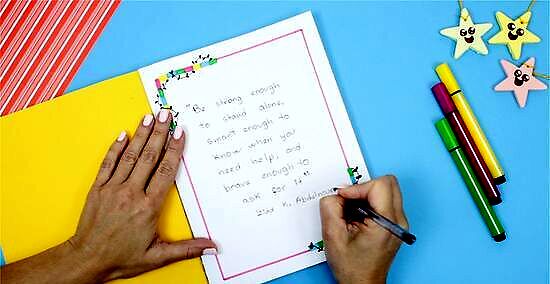 "Be strong enough
to stand alone,
smart enough to
know when you
need help, and
brave enough to
ask for it"
K. Abdelnour